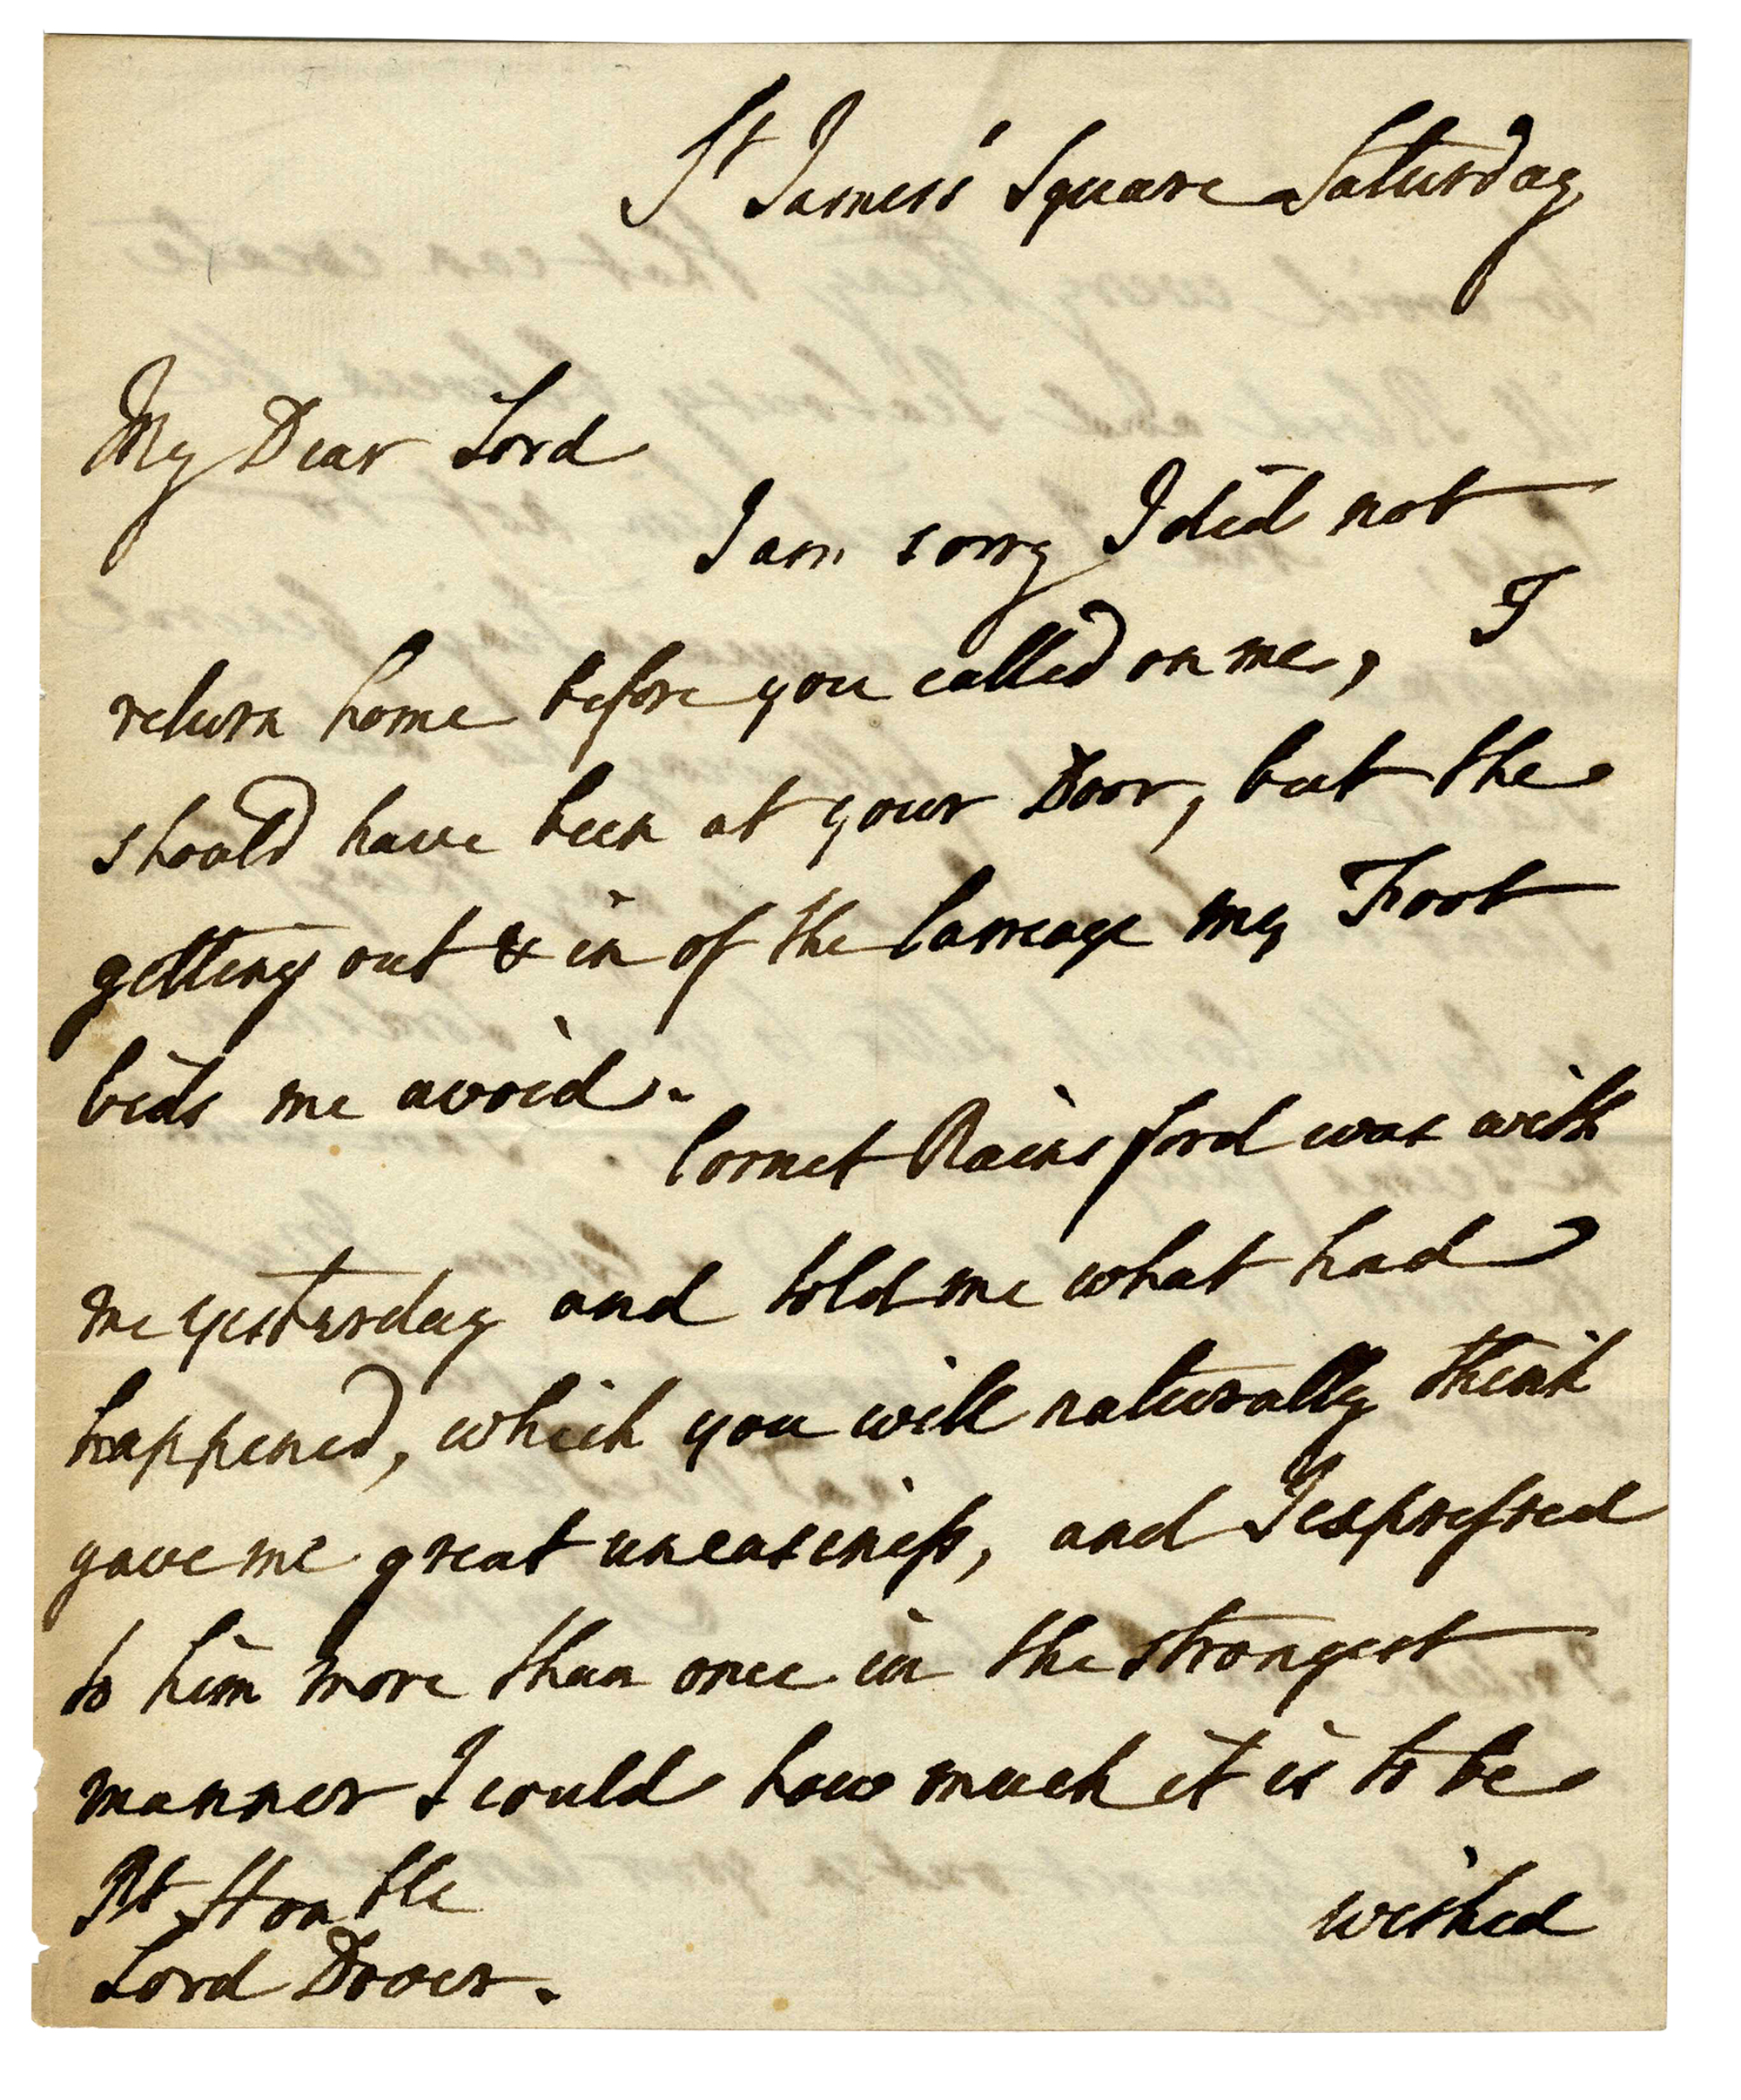 St James's Square Saturday
My Dear Lord
I am sorry I did not
return home before you called on me, I
should have been at your Door, but the
getting out & in of the Carreage my Foot
bids me avoid.
Cornet Rainsford was with
me yesterday and told me what had
happened, which you will naturally think
gave me great uneasiness, and I expressed
to him more than once in the strongest
manner I could how much it is to be
Rt Honble
wished
Lord Dover.